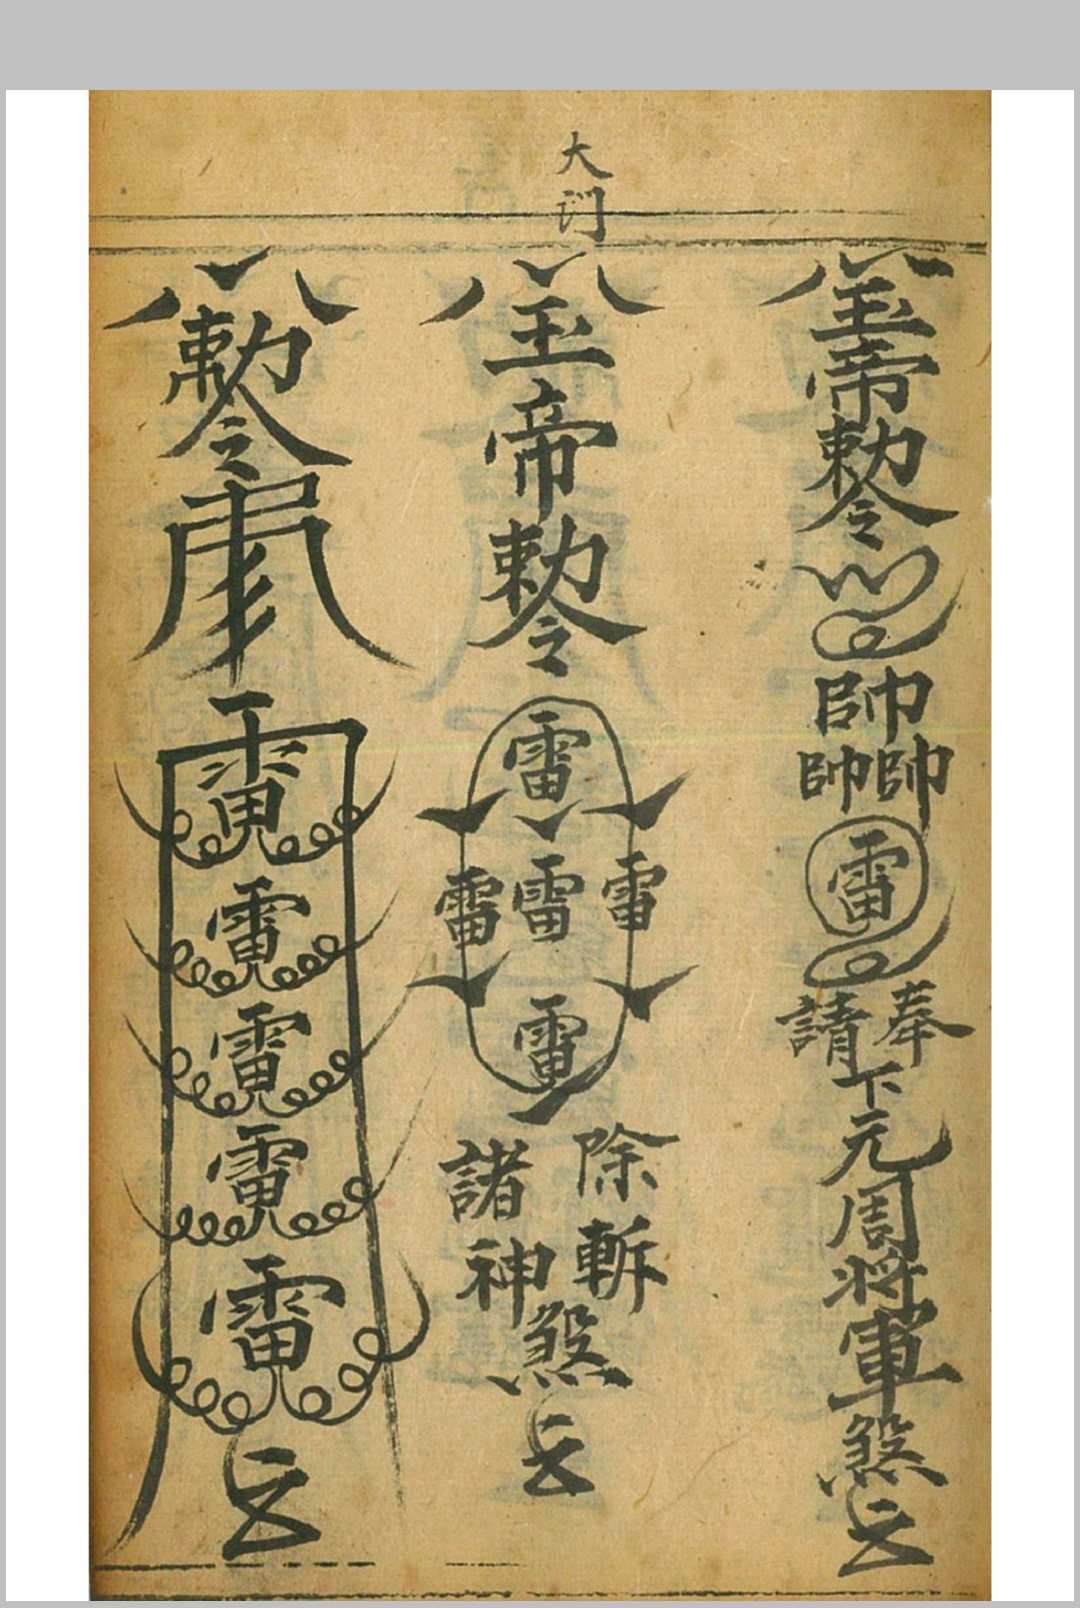 玉帝勅令
帥
帥帥
雷
奉請
下元周将軍煞
大门
玉帝勅令
雷
雷雷雷
雷
除斬
諸神
煞
勅令
雷
雷
雷
雷